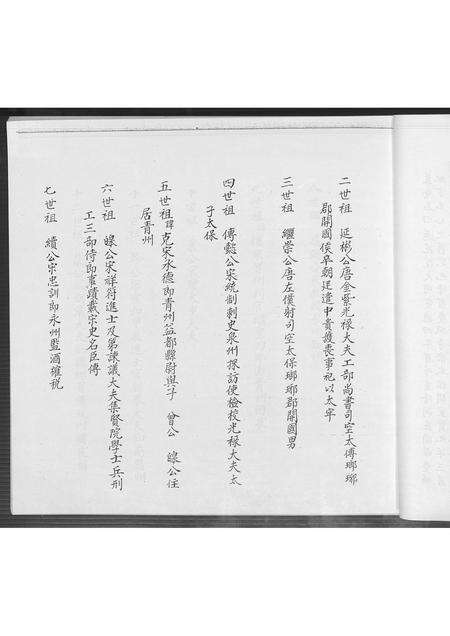 二世祖　延彬公唐金紫光祿大夫工部尚書司空太傅瑯琊
郡開國侯卒朝廷遣中貴護喪事祀以太牢
三世祖　繼崇公唐左僕射司空太保瑯琊郡開國男
四世祖　傳懿公宋統制刺史泉州採訪使檢校光祿大夫太
子太保
五世祖諱克宋承德郎青州益都縣尉與子　曾公　公任
居青州
六世祖　公宋祥符進士及第諫議大夫集賢院學士兵刑
工三部侍郎事蹟載宋史名臣傳
七世祖　績公宋忠訓郎永州監酒稅